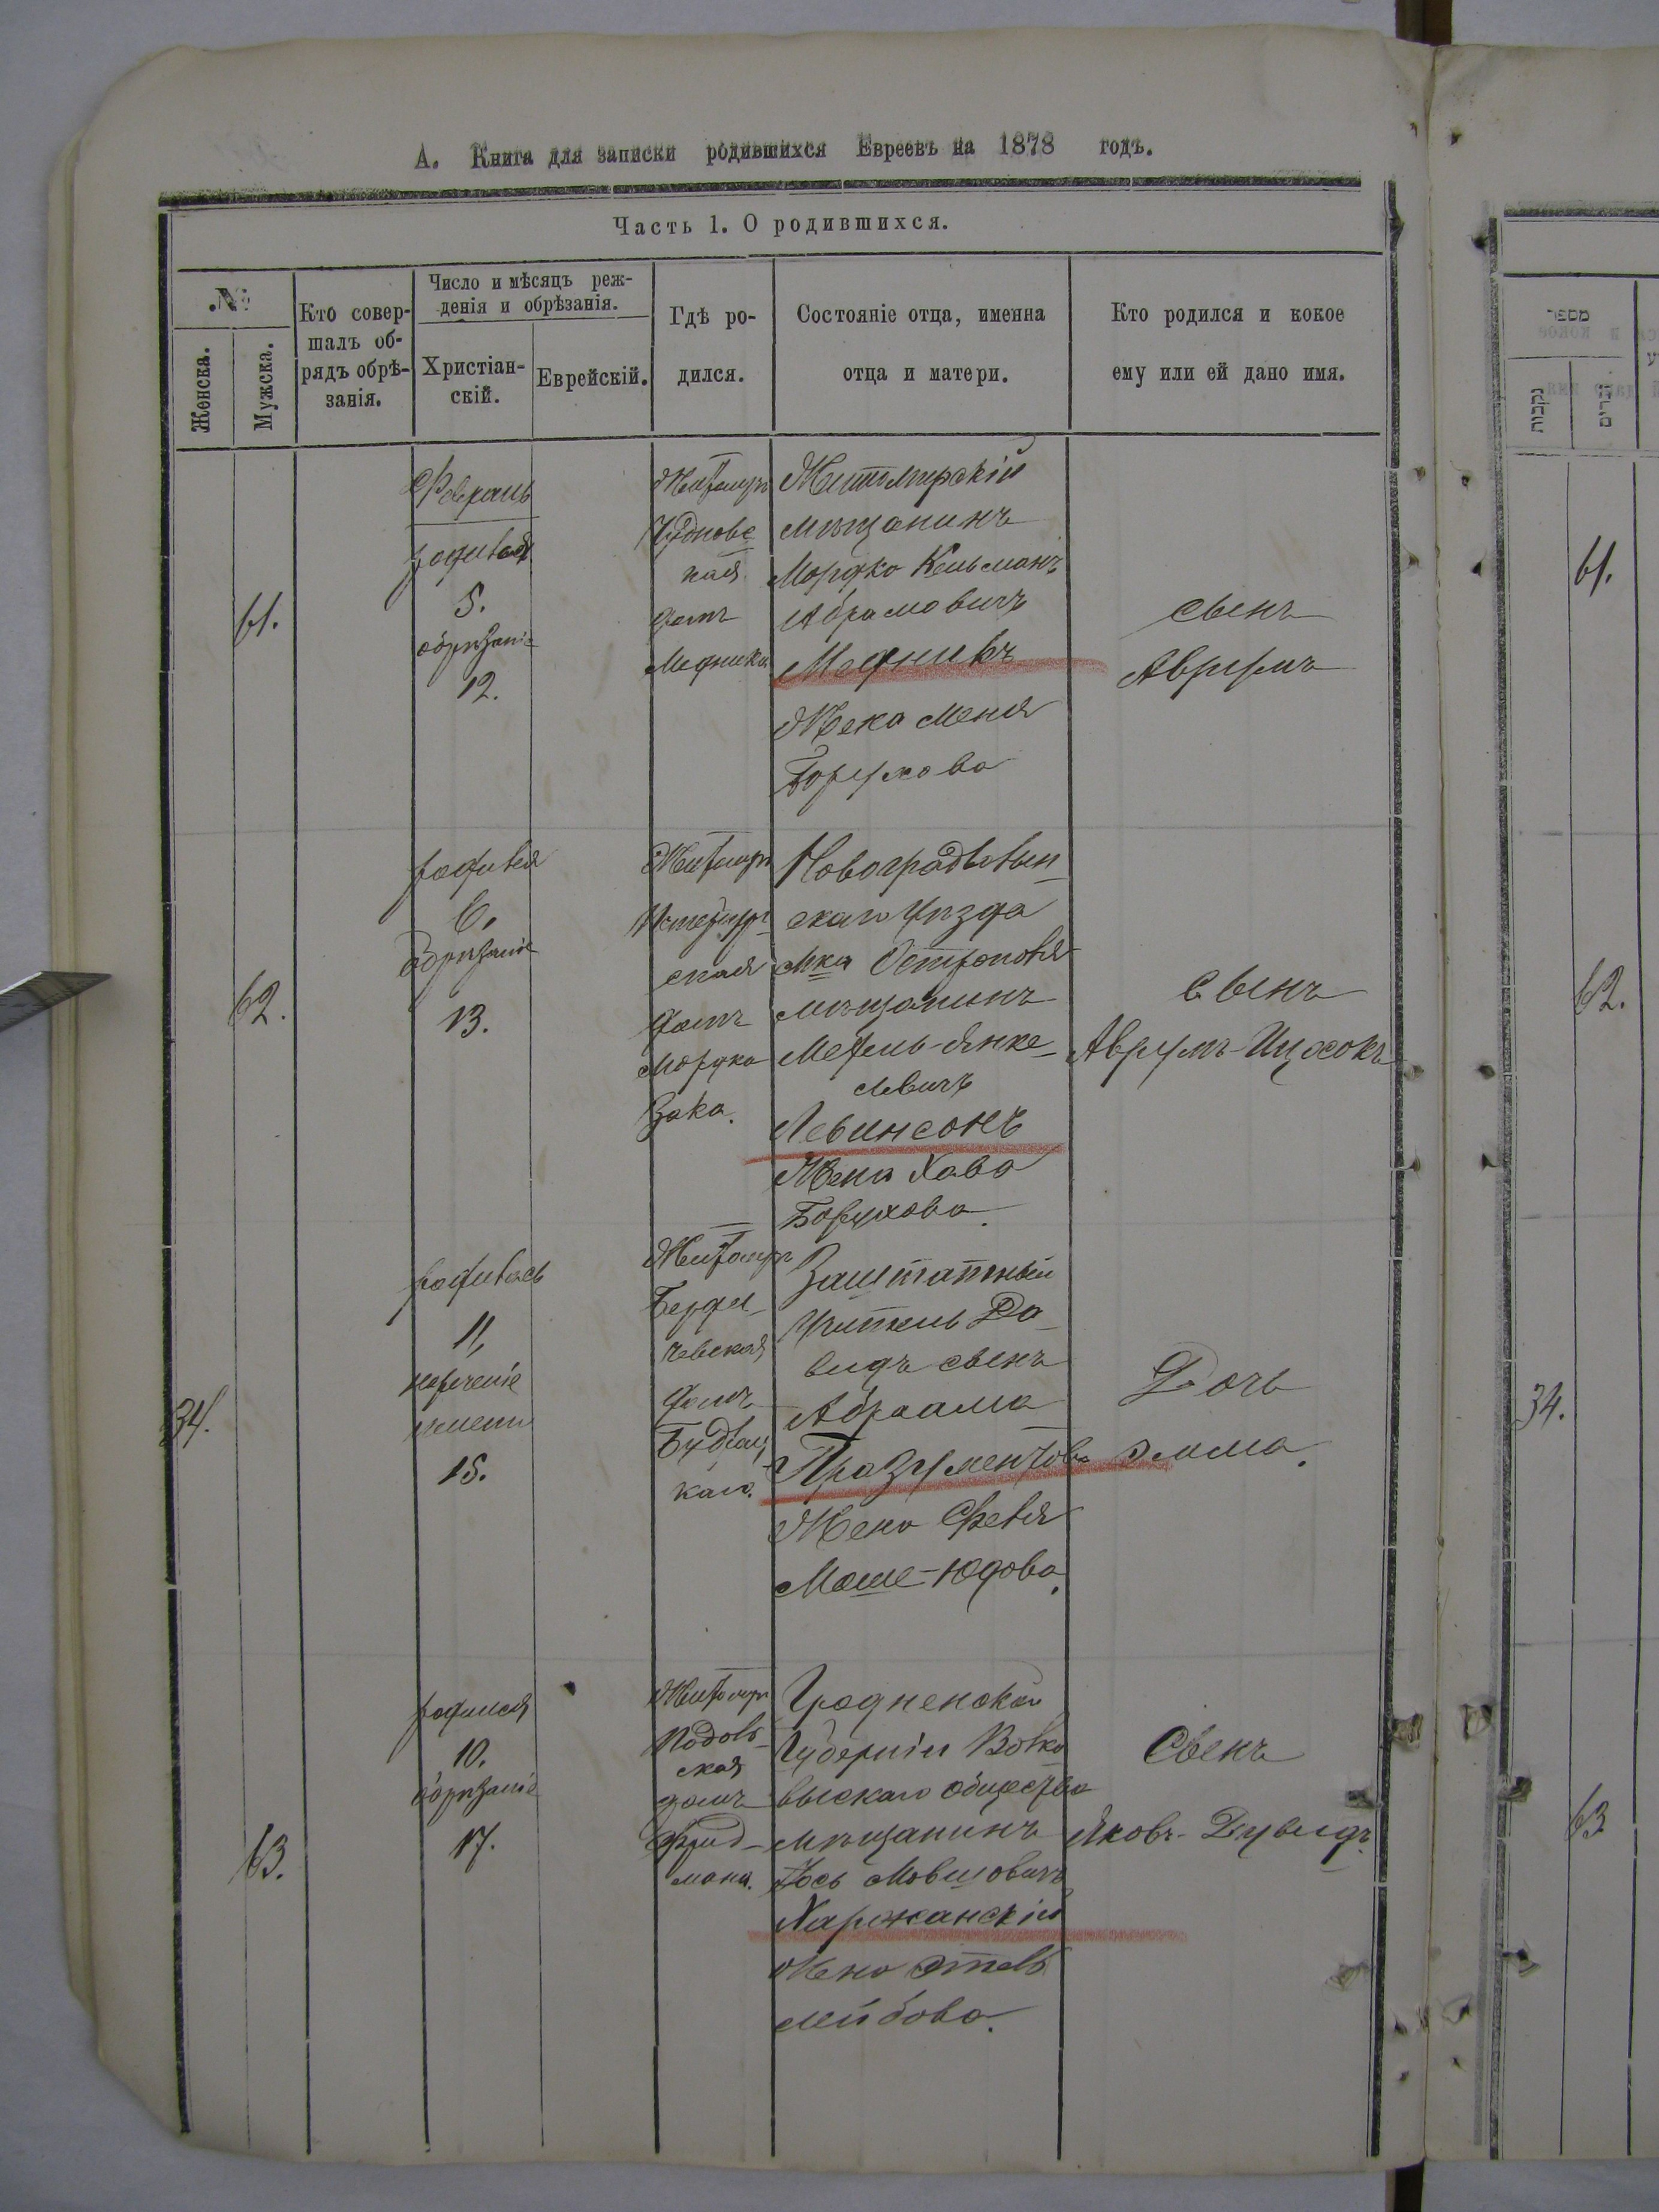 А. Книга для записки родившихся Евреевъ на 1878 годъ.
Часть 1. О родившихся.
№
Женска.
Мужска.
Кто совер-
шалъ об-
рядъ обрѣ-
занія.
Число и мѣсяцъ реж-
денія и обрѣзанія.
Христіан-
скій.
Еврейскій.
Гдѣ ро-
дился.
Состояніе отца, имянна
отца и матери.
Кто родился и кокое
ему или ей дано имя.
61.
Февраль
родился
5.
обрѣзаніе
12.
Житомиръ
Чудновс
кая
домъ
Медника
Житомирскій
мѣщанинъ
Мордко Кельманъ
Абрамовичъ
Медникъ
Жена Меня
Борухова
сынъ
Аврумъ
62.
родился
6.
обрѣзаніе
13.
Житомиръ
ская
домъ
Мордка
Зака.
Новоградволын
скаго уѣзда
мка Острополя
мѣщанинъ
Янке-
левичъ
Левинсонъ
Жена Хава
Борухова.
Сынъ
Аврумъ-Ицхокъ
34.
родилась
11,
нареченіе
имени
15.
Житомиръ
Берди-
чевская
домъ
каго.
Заштатный
Учитель Да-
видъ сынъ
Абраама
Празументовъ
Жена Фейга
Моше-Юдова.
Дочь
Эмма.
63.
родился
10.
обрѣзаніе
17.
Житомиръ
Подоль-
ская
домъ
Фрид-
мана.
Гродненской
Губерніи Волко
выскаго общества
мѣщанинъ
Іось Мовшовичъ
Харжанскій
Жена Этель
Лейбова.
Сынъ
Яковъ-Дувидъ.
מספר
נקבות
זכרים
61.
62.
34.
63